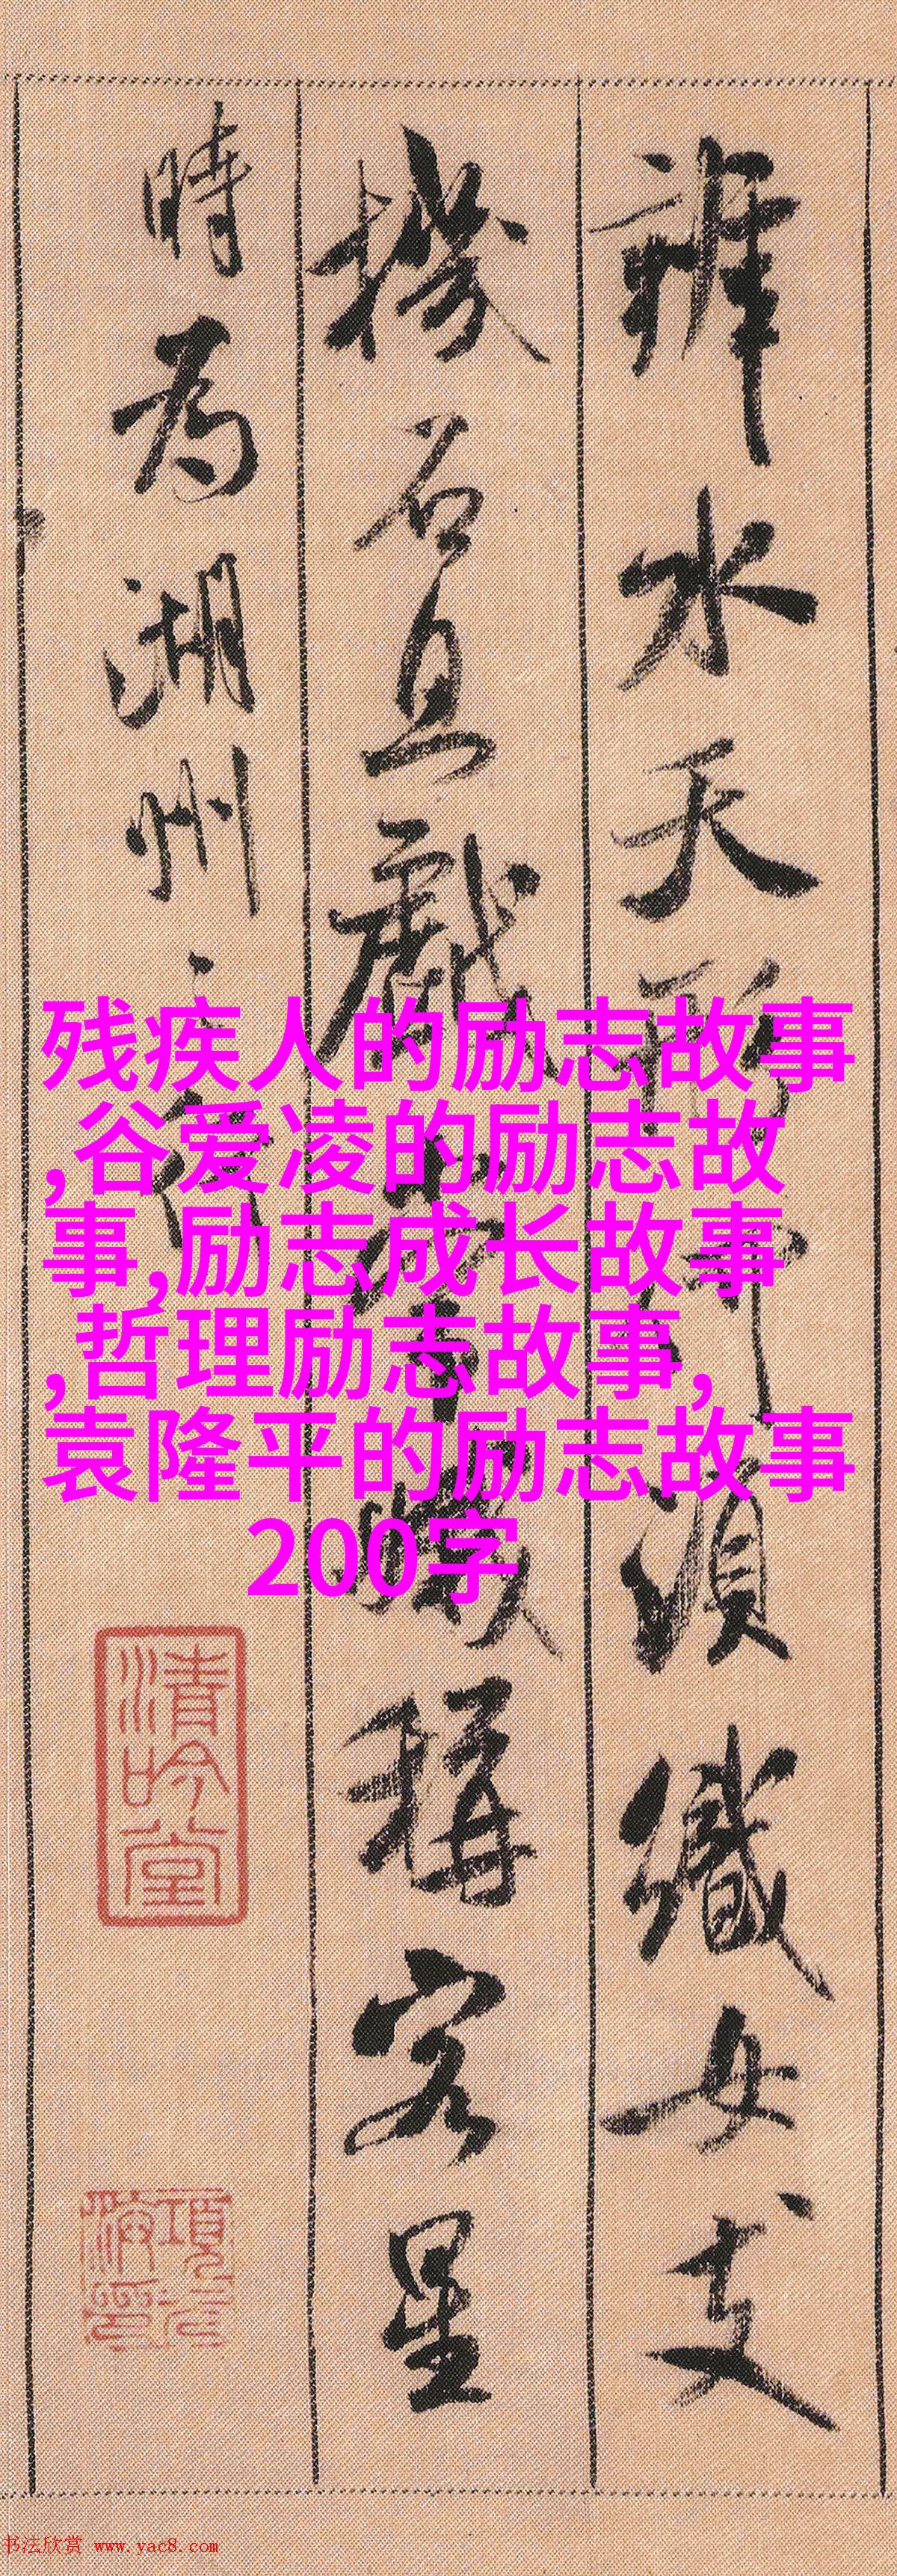 辨水天形何須織女支
機石且戲常娥稱客星
時為湖州之行
残疾人的励志故事
,谷爱凌的励志故
事,励志成长故事
,哲理励志故事,
袁隆平的励志故事
200字
清吟堂
书法欣赏 www.yac8.com